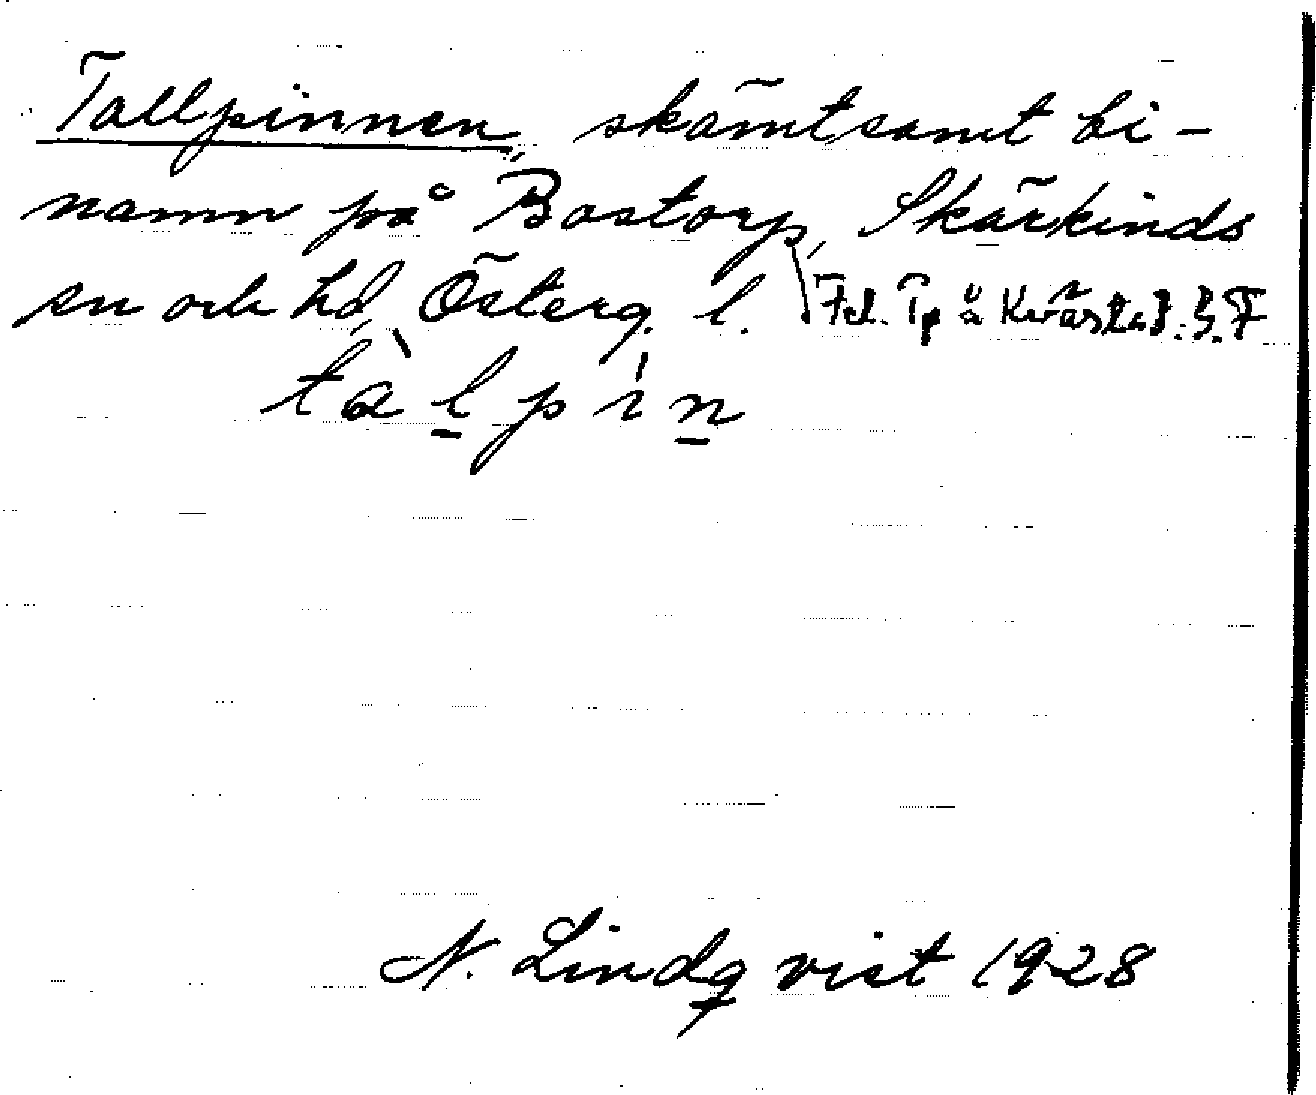 Tallpinnen, skämtsamt bi-
namn på Bostorp, Skärkinds
sn och hd, Österg. l.
Tp å Kvarstad.
tàlpín
N. Lindqvist 1928